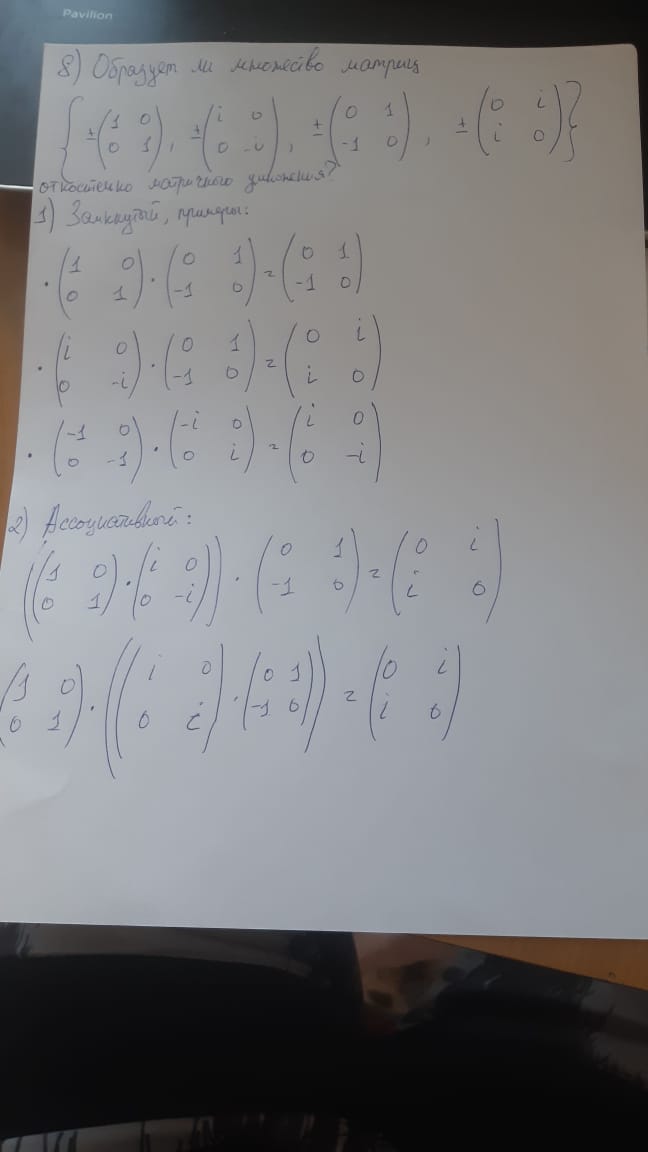 Pavilion
8) Образует ли множество матриц
{ ±(1 0; 0 1), ±(i 0; 0 -i), ±(0 1; -1 0), ±(0 i; i 0) }
отностенко матричного умножения?
1) Замкнутый, примеры:
· (1 0; 0 1) · (0 1; -1 0) = (0 1; -1 0)
· (i 0; 0 -i) · (0 1; -1 0) = (0 i; i 0)
· (-1 0; 0 -1) · (-i 0; 0 i) = (i 0; 0 -i)
2) Ассоциативной:
((1 0; 0 1) · (i 0; 0 -i)) · (0 1; -1 0) = (0 i; i 0)
(1 0; 0 1) · ((i 0; 0 i) · (0 1; -1 0)) = (0 i; i 0)